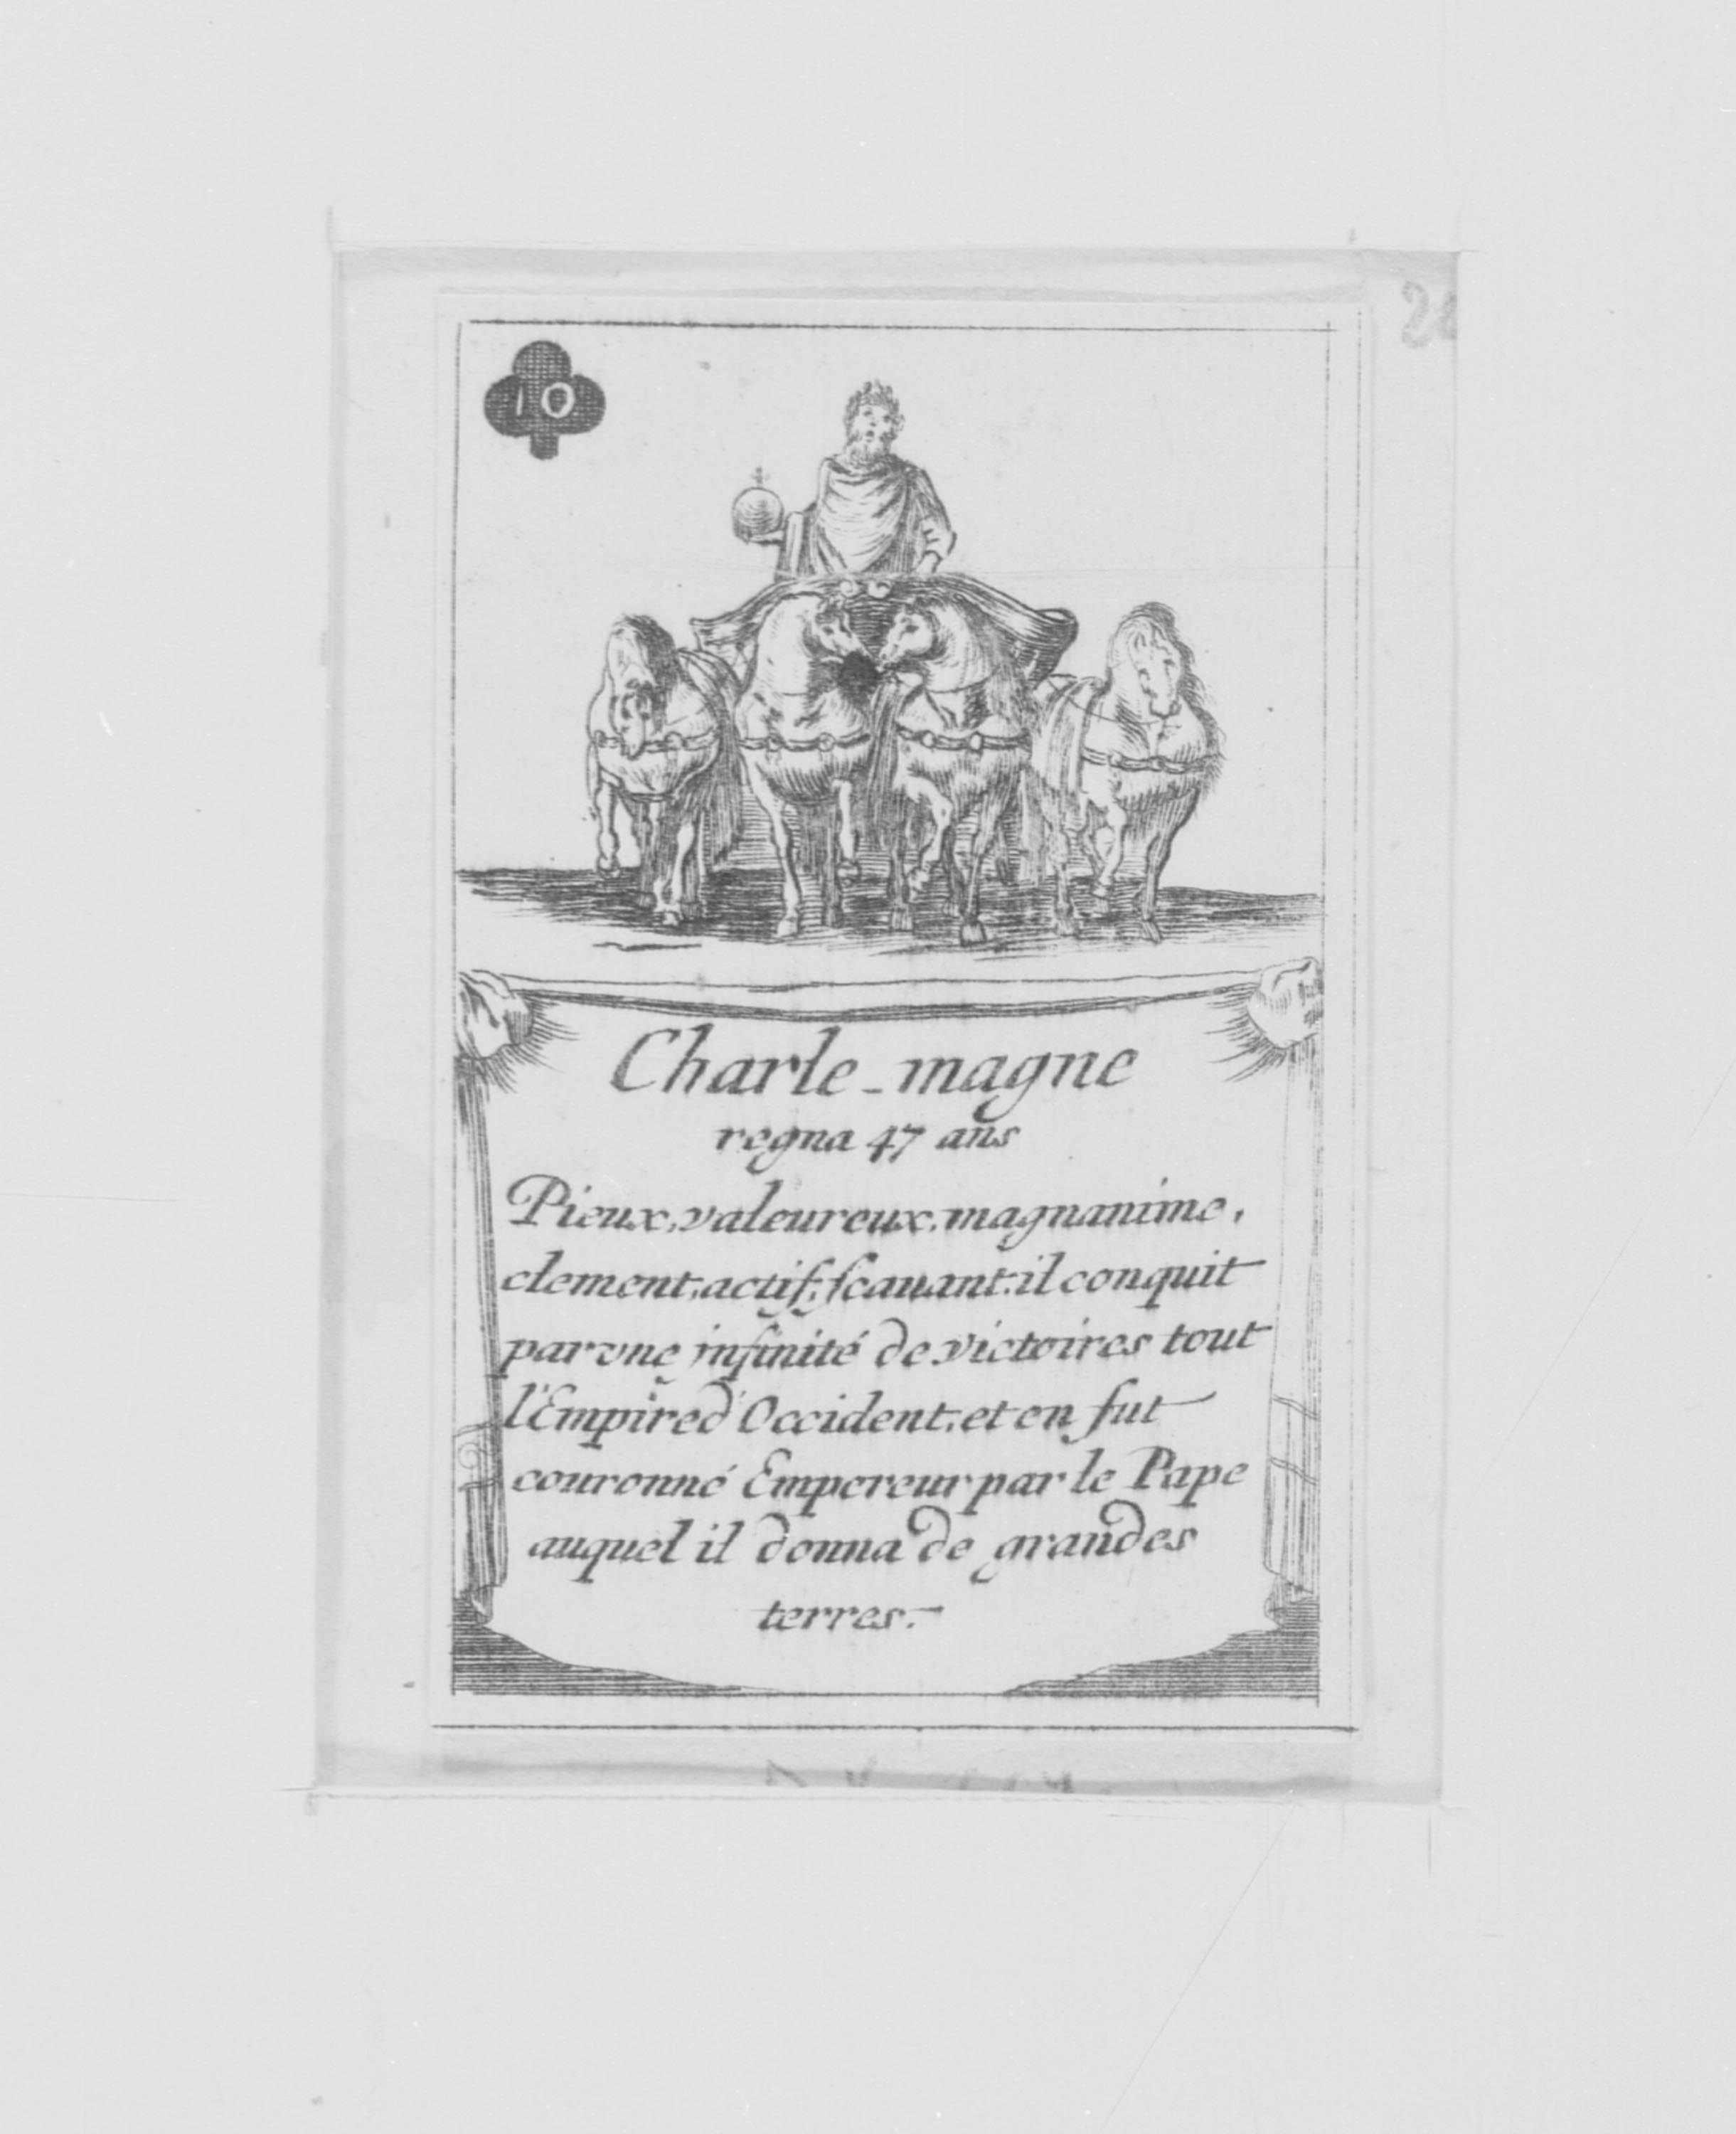 10
Charle-magne
regna 47 ans
Pieux, valeureux, magnanime,
clement, actif, scauant: il conquit
par vne infinité de victoires tout
l'Empire d'Occident, et en fut
couronné Empereur par le Pape
auquel il donna de grandes
terres.